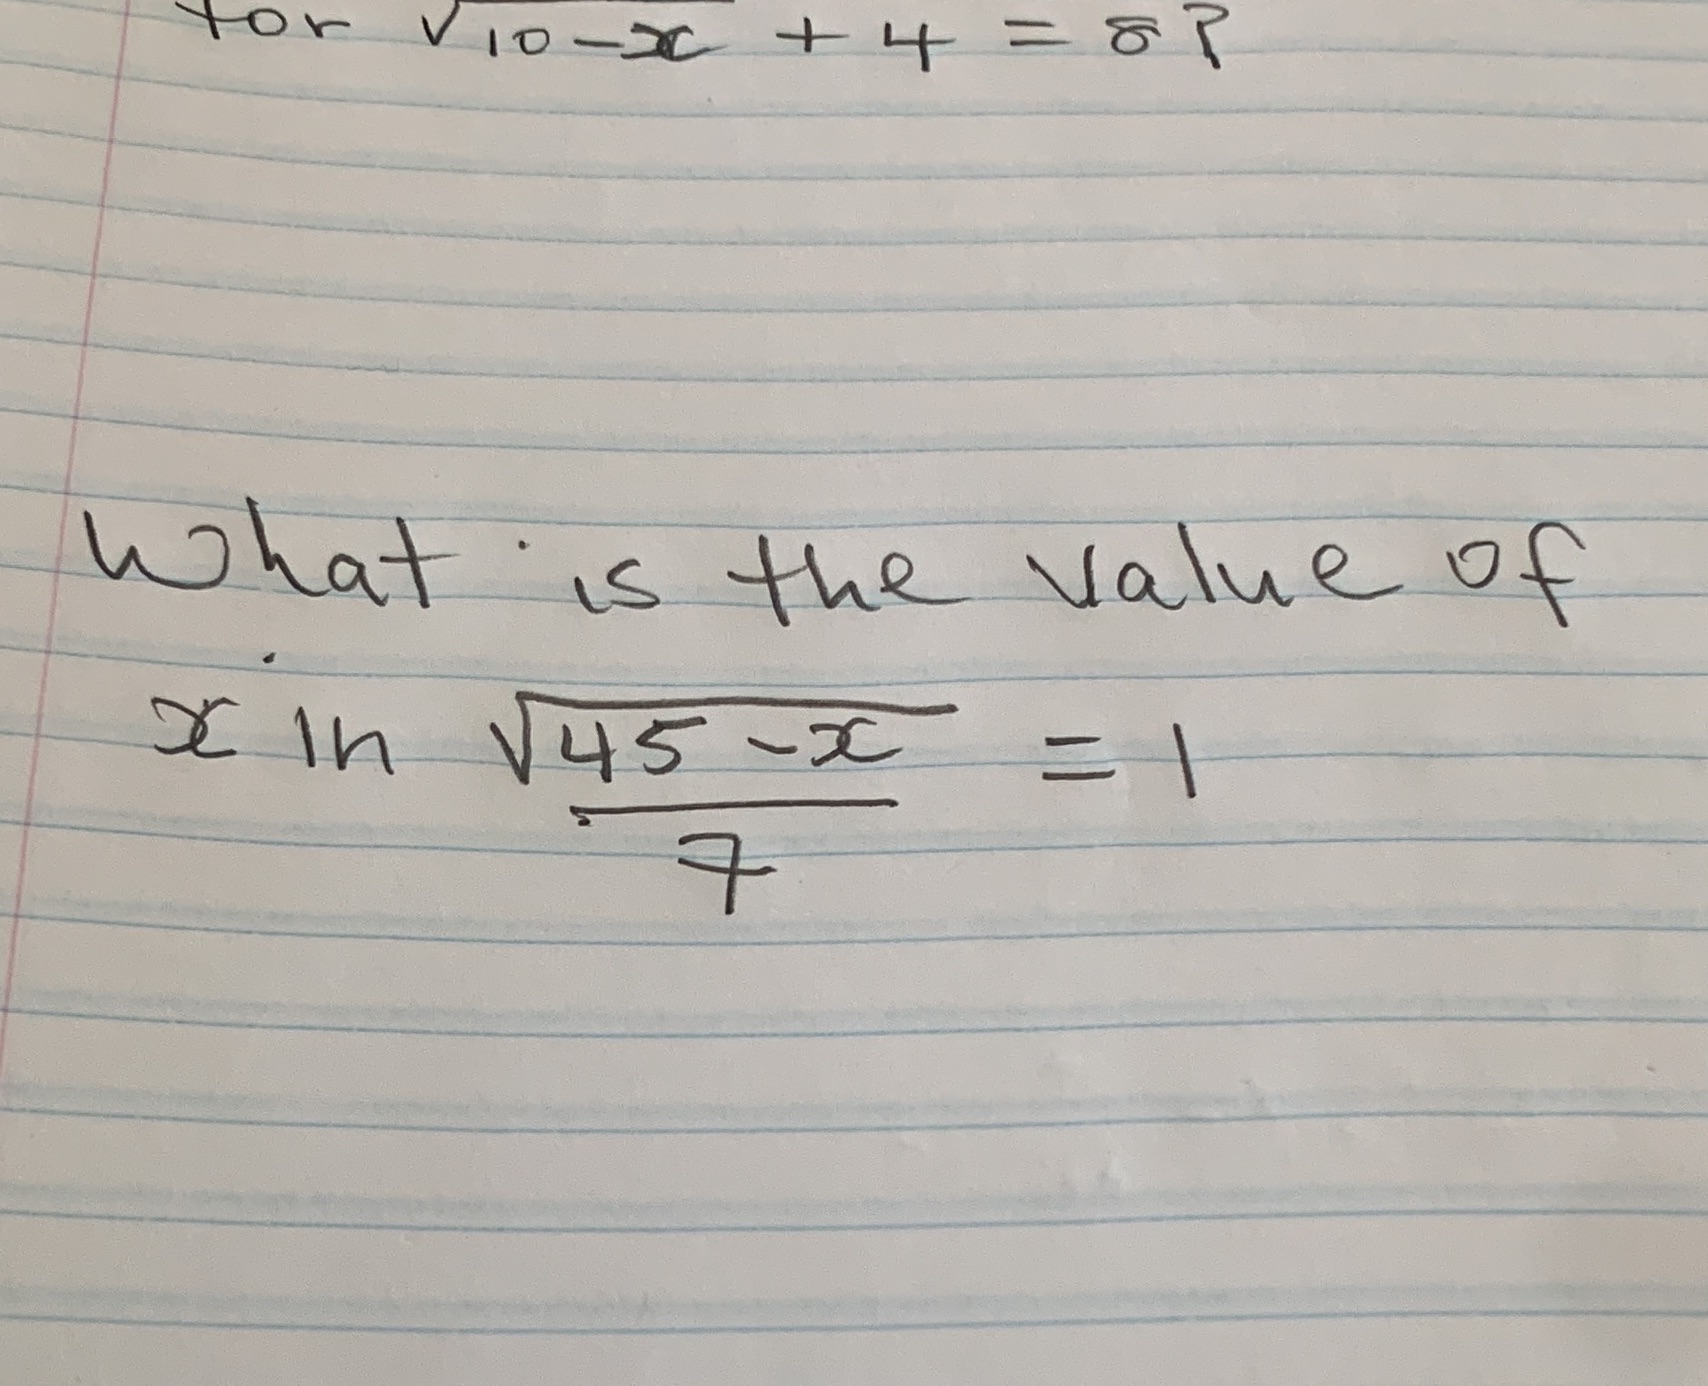 for √10-x + 4 = 8?
What is the value of
x in √45-x/7 = 1